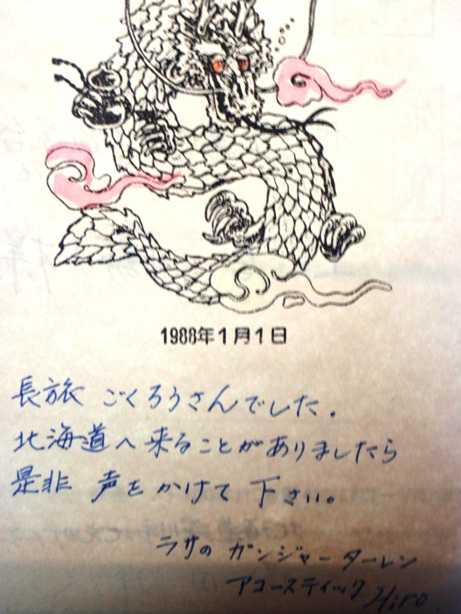 1988年1月1日
長旅 ごくろうさんでした.
北海道へ来ることがありましたら
是非 声をかけて 下さい。
ラサの ガンジャーターレン
アコースティック Hiro.